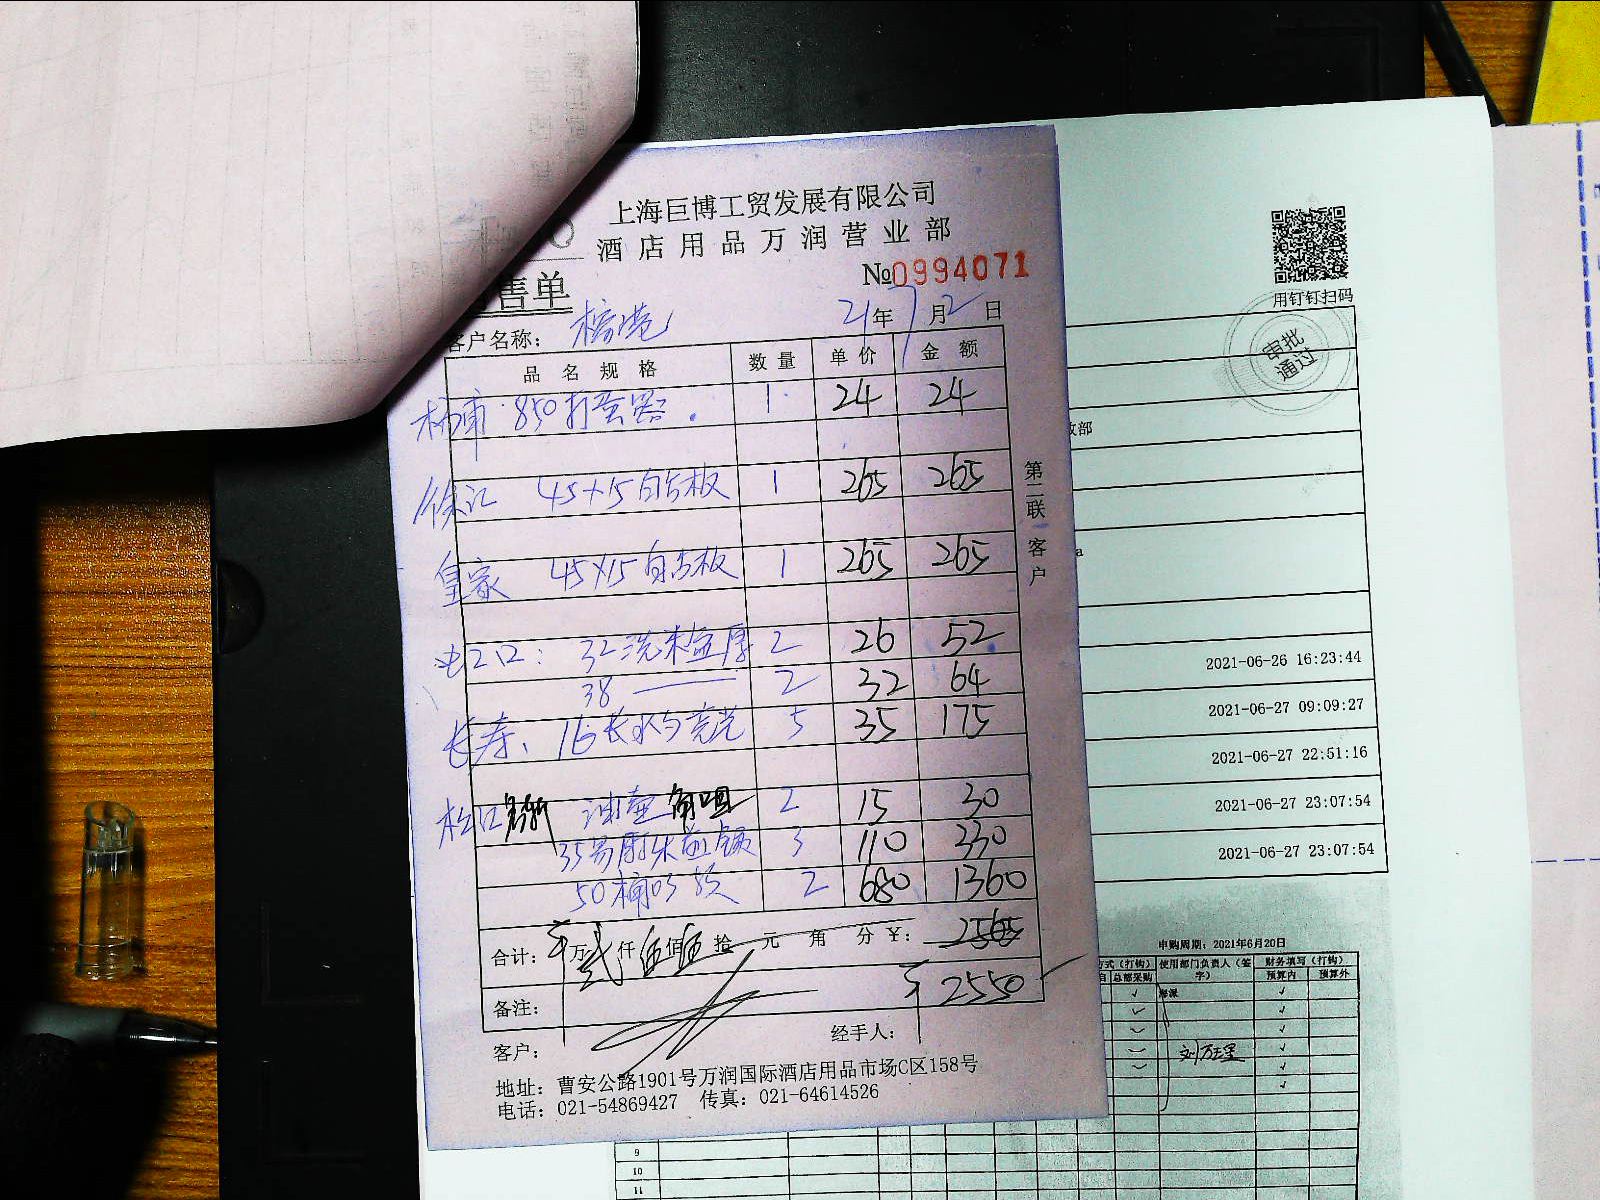 上海巨博工贸发展有限公司
酒店用品万润营业部
售单
№0994071
客户名称:
21年7月2日
品名规格 数量 单价 金额
850打蛋器. 1 24 24
徐汇 45×15自占板 1 265 265
皇家 45×15自占板 1 265 265
32洗米盆厚 2 26 52
38 —— 2 32 64
长寿、16长水勺 5 35 175
松江 油壶 2 15 30
35 3 110 330
50桶 2 680 1360
合计: 万贰仟伍佰伍拾 元 角 分 ¥: 2565
2550
备注:
客户:
经手人:
地址: 曹安公路1901号万润国际酒店用品市场C区158号
电话: 021-54869427 传真: 021-64614526
第二联 客户
用钉钉扫码
审批通过
2021-06-26 16:23:44
2021-06-27 09:09:27
2021-06-27 22:51:16
2021-06-27 23:07:54
2021-06-27 23:07:54
申购周期: 2021年6月20日
方式(打钩) 使用部门负责人(签字) 财务填写(打钩)
总部采购 预算内 预算外
9
10
11